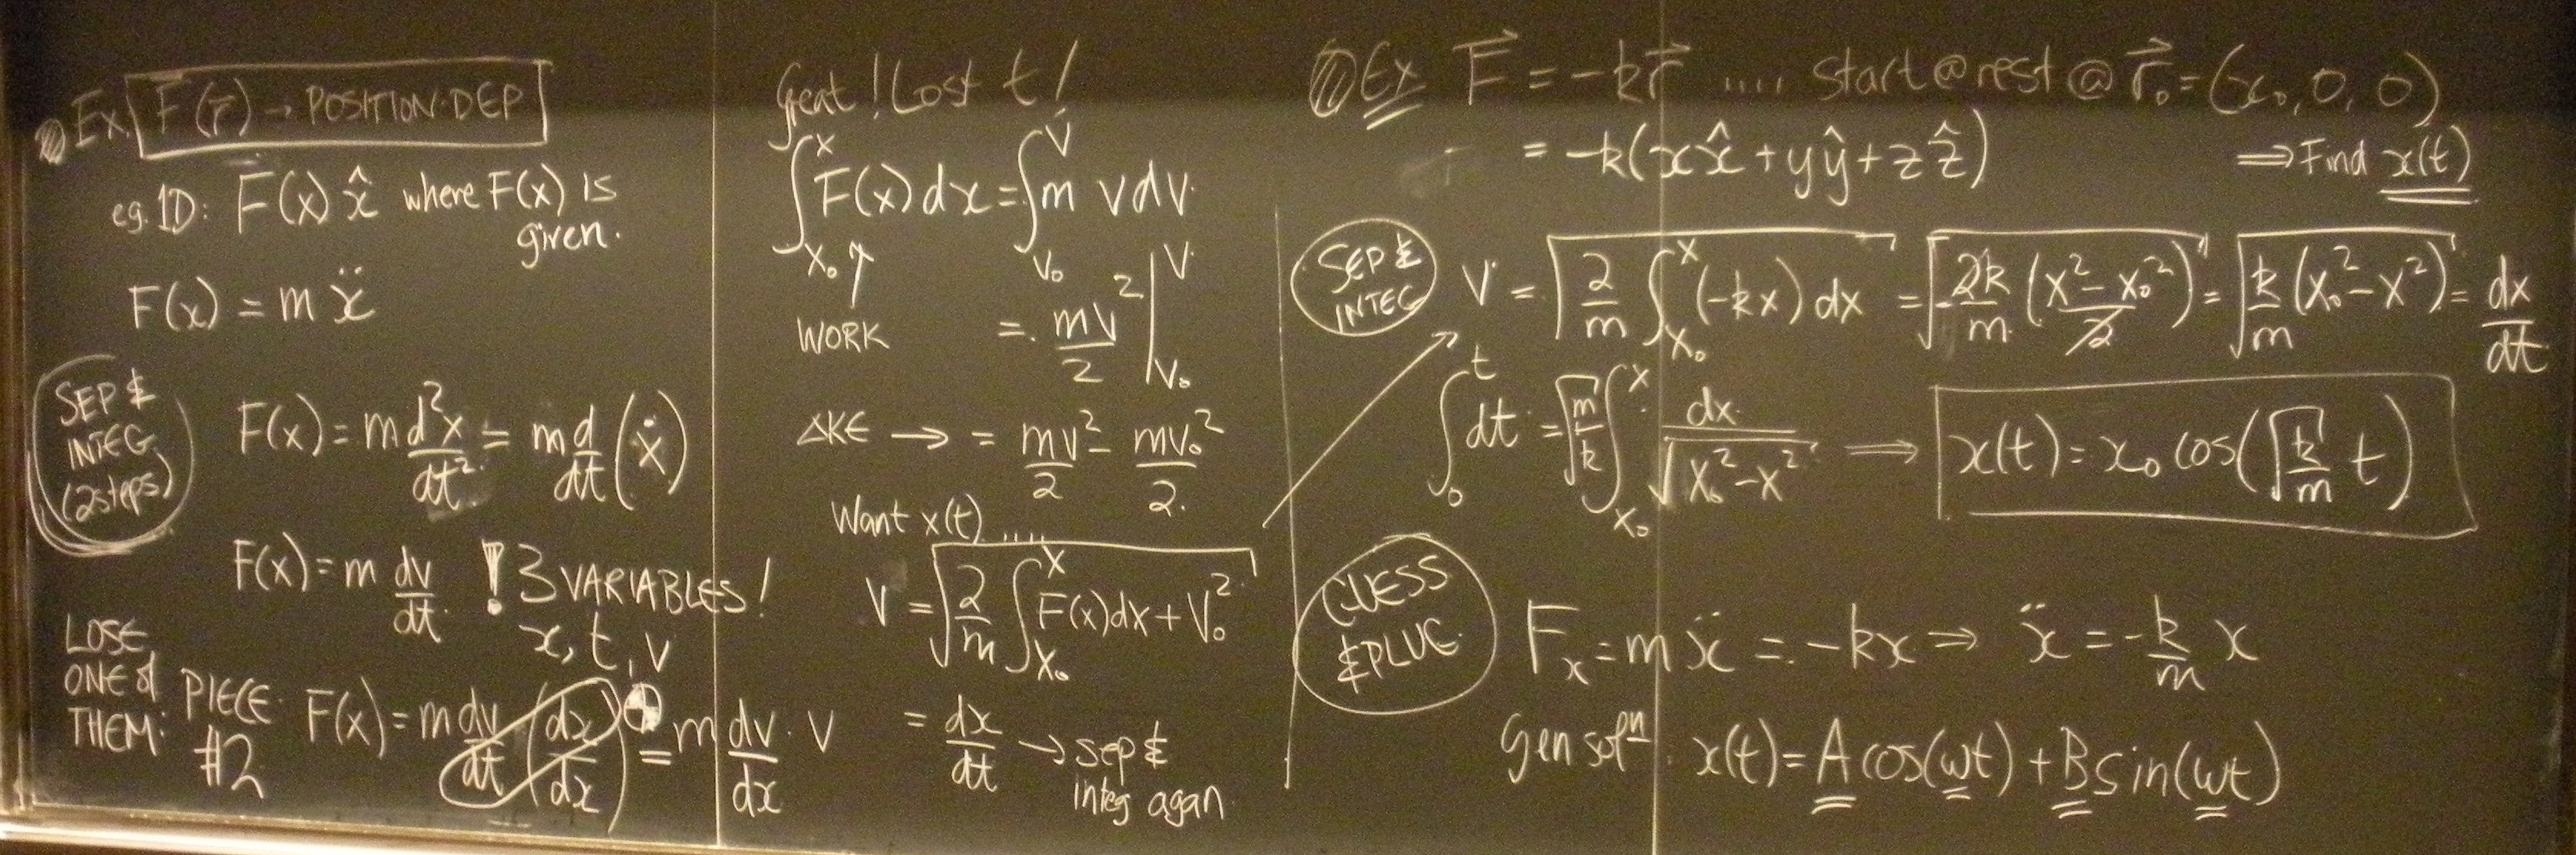 Ex. F(r⃗) → POSITION-DEP
eg. 1D: F(x) x̂ where F(x) is
given.
F(x) = m ẍ
SEP &
INTEG
(2 steps)
F(x) = m d²x/dt² = m d/dt (ẋ)
F(x) = m dv/dt ! 3 VARIABLES!
x, t, v
LOSE
ONE of
THEM:
PIECE
#2
F(x) = m dv/dt (dx/dx) = m dv/dx · v
Great! Lost t!
∫_{x₀}^{x} F(x) dx = ∫_{v₀}^{v} m v dv
WORK = mv²/2 |_{v₀}^{v}
ΔKE → = mv²/2 - mv₀²/2
Want x(t) .....
v = √(2/m ∫_{x₀}^{x} F(x)dx + v₀²)
= dx/dt → sep &
integ agan
Ex F⃗ = -kr⃗ .... start @ rest @ r⃗₀ = (x₀, 0, 0)
= -k(xx̂ + yŷ + zẑ) ⇒ Find x(t)
SEP &
INTEG
v = √(2/m ∫_{x₀}^{x} (-kx) dx) = √(-2k/m (x² - x₀²)/2) = √(k/m (x₀² - x²)) = dx/dt
∫_{0}^{t} dt = √(m/k) ∫_{x₀}^{x} dx/√(x₀² - x²) ⟹ x(t) = x₀ cos(√(k/m) t)
GUESS
& PLUG
Fₓ = m ẍ = -kx ⇒ ẍ = -k/m x
Gen solⁿ: x(t) = A cos(ωt) + B sin(ωt)